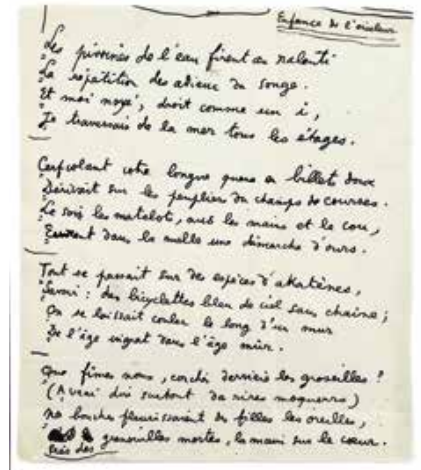 Enfance de l'oiseleur
Les piscines de l'eau firent au ralenti
La répétition des adieux du songe.
Et moi noyé, droit comme un i,
Je traversais de la mer tous les étages.
Cerfvolant votre longue queue en billet doux
Dérivait sur les peupliers du champs de courses.
Le soir les matelots, avec les mains et le cou,
dans la malle une démarche d'ours.
Tout se passait sur des espèces d'akatènes,
Savoir : des bicyclettes bleu de ciel sans chaîne ;
On se laissait couler le long d'un mur
De l'âge ingrat dans l'âge mûr.
Que fîmes nous, cachés derrière les groseilles ?
(A vrai dire surtout de rires moqueurs)
Nos bouches fleurissaient de filles les oreilles,
grenouilles mortes, la main sur le cœur.
des